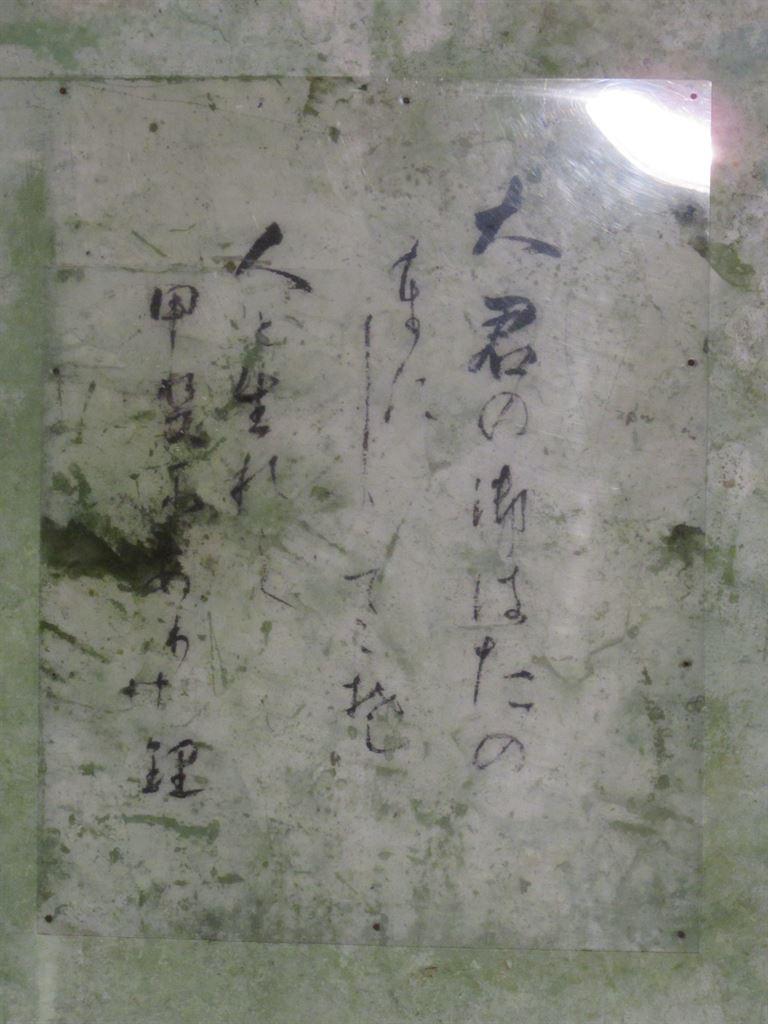 大君の御はたの
もとに
しゝてこそ
人と生れし
甲斐ぞありけ理